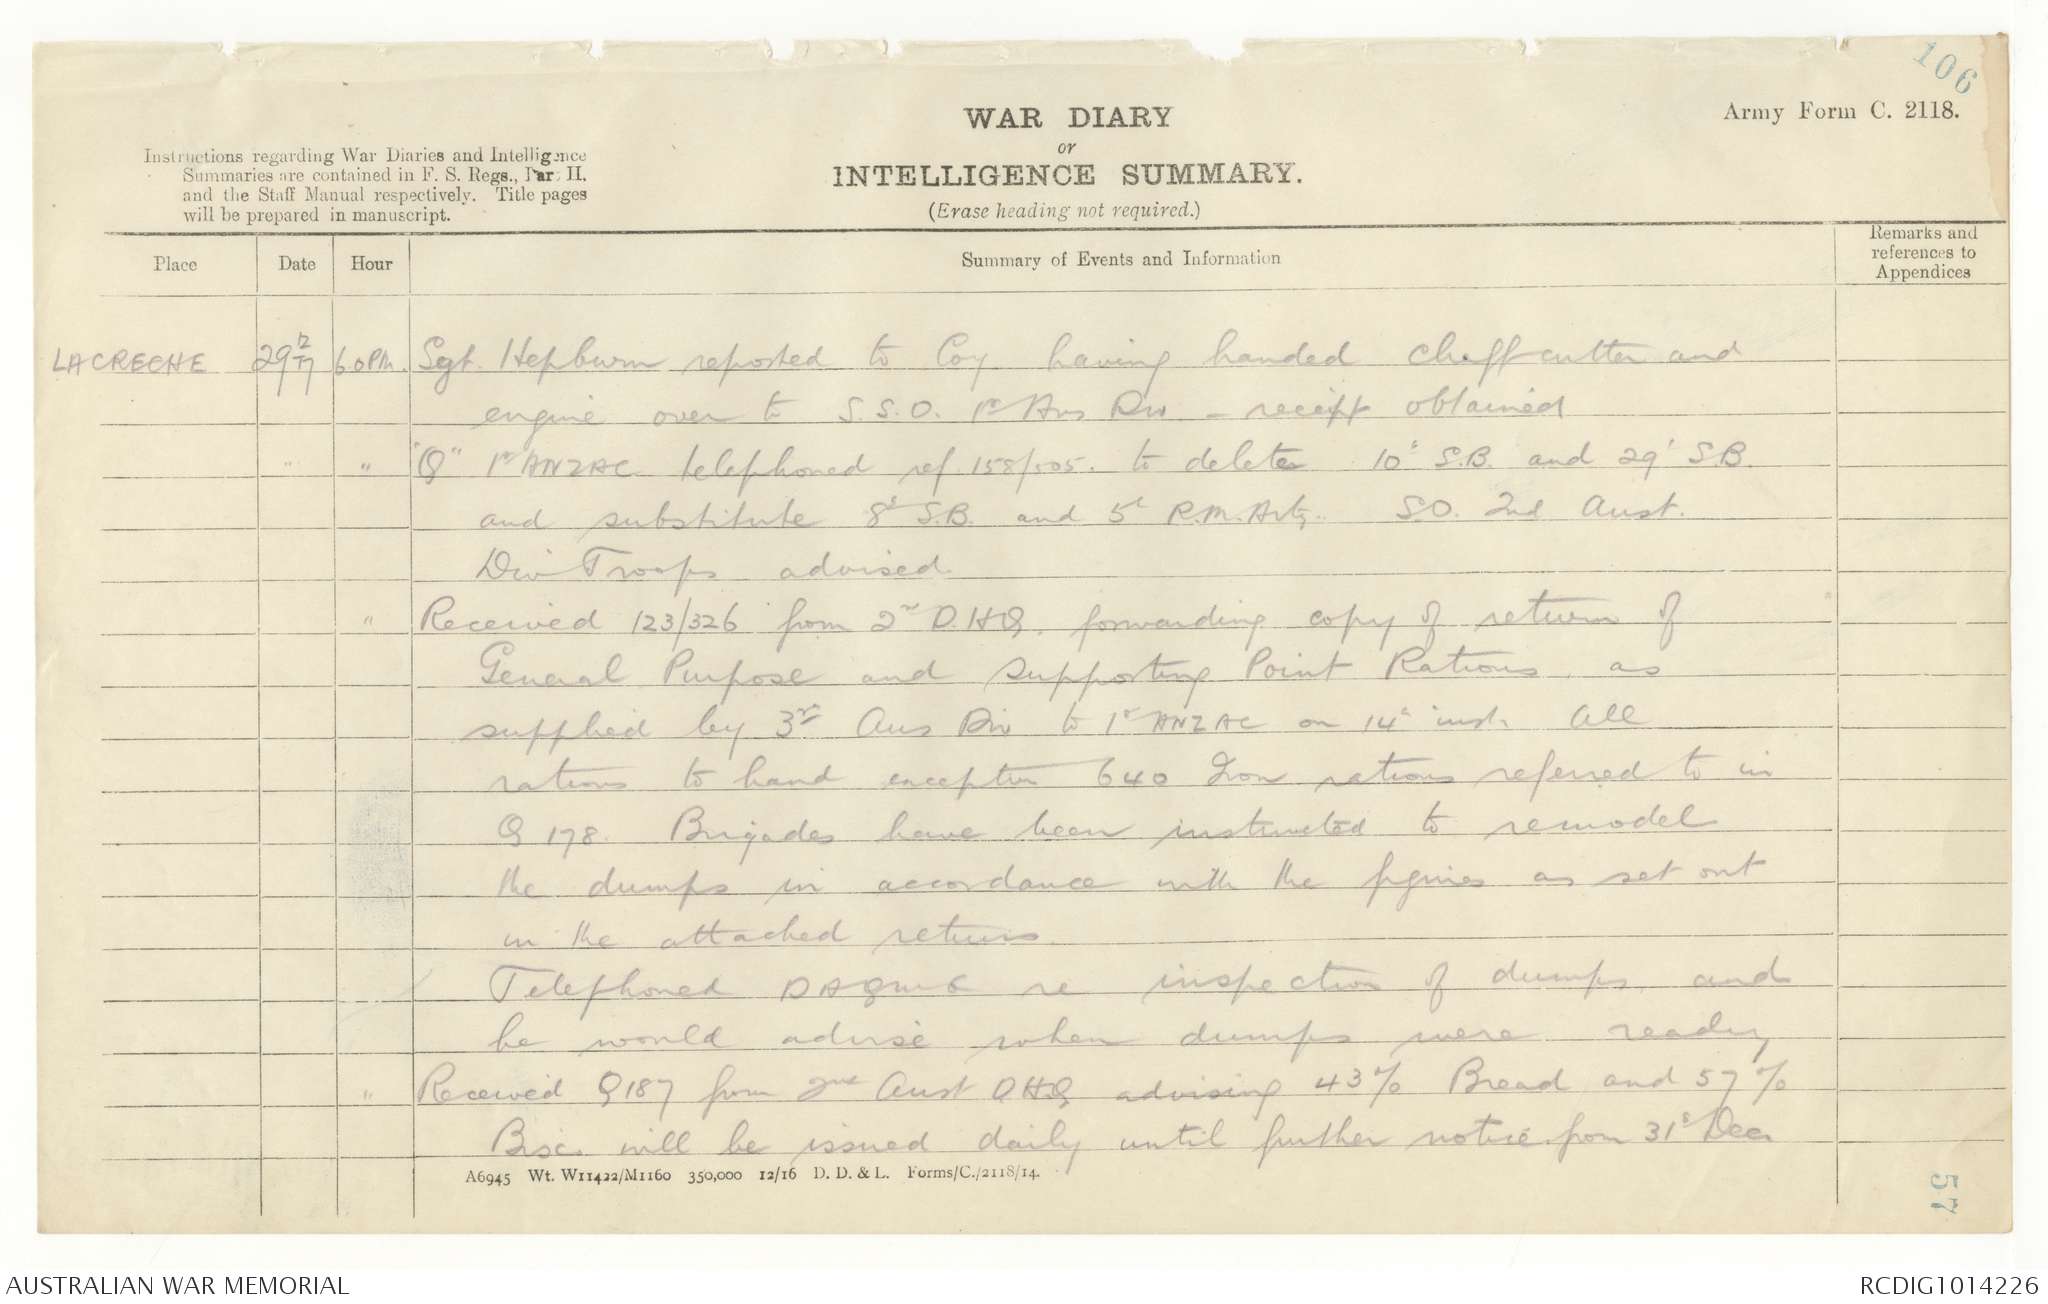 106
Army Form C. 2118.
WAR DIARY
or
INTELLIGENCE SUMMARY.
(Erase heading not required.)
Instructions regarding War Diaries and Intelligence
Summaries are contained in F. S. Regs., Part II.
and the Staff Manual respectively. Title pages
will be prepared in manuscript.
Place Date Hour Summary of Events and Information Remarks and references to Appendices
LA CRECHE 29/12/17 6 0 PM. Sgt. Hepburn reported to Coy having handed chaffcutter and
engine over to S.S.O. 1st Aus Div - receipt obtained
" " "Q" 1st ANZAC telephoned ref 158/505. to delete 10th S.B. and 29th S.B.
and substitute 8th S.B. and 5th R.M. Arty. S.O. 2nd Aust.
Div Troops advised.
" Received 123/326 from 2nd D.H.Q. forwarding copy of return of
General Purpose and Supporting Point Rations as
supplied by 3rd Aus Div to 1st ANZAC on 14th inst. All
rations to hand except 640 Iron rations referred to in
Q 178. Brigades have been instructed to remodel
the dumps in accordance with the figures as set out
in the attached returns.
Telephoned DAQMG re inspection of dumps and
he would advise when dumps were ready
" Received Q187 from 2nd Aust DHQ advising 43% Bread and 57%
Bisc. will be issued daily until further notice from 31st Dec
A6945 Wt. W11422/M1160 350,000 12/16 D. D. & L. Forms/C./2118/14.
57
AUSTRALIAN WAR MEMORIAL
RCDIG1014226